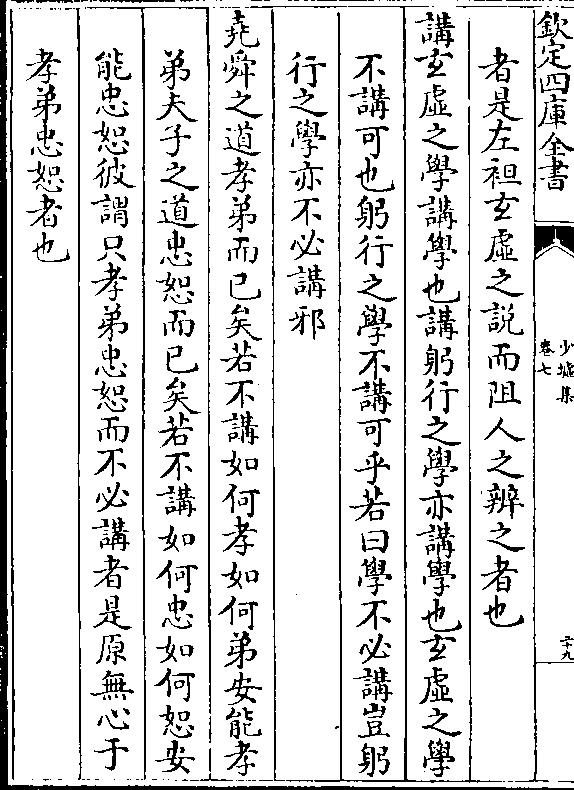 欽定四庫全書
少墟集
卷七
二十九
者是左袒玄虛之説而阻人之辨之者也
講玄虛之學講學也講躬行之學亦講學也玄虛之學
不講可也躬行之學不講可乎若曰學不必講豈躬
行之學亦不必講邪
堯舜之道孝弟而已矣若不講如何孝如何弟安能孝
弟夫子之道忠恕而已矣若不講如何忠如何恕安
能忠恕彼謂只孝弟忠恕而不必講者是原無心于
孝弟忠恕者也